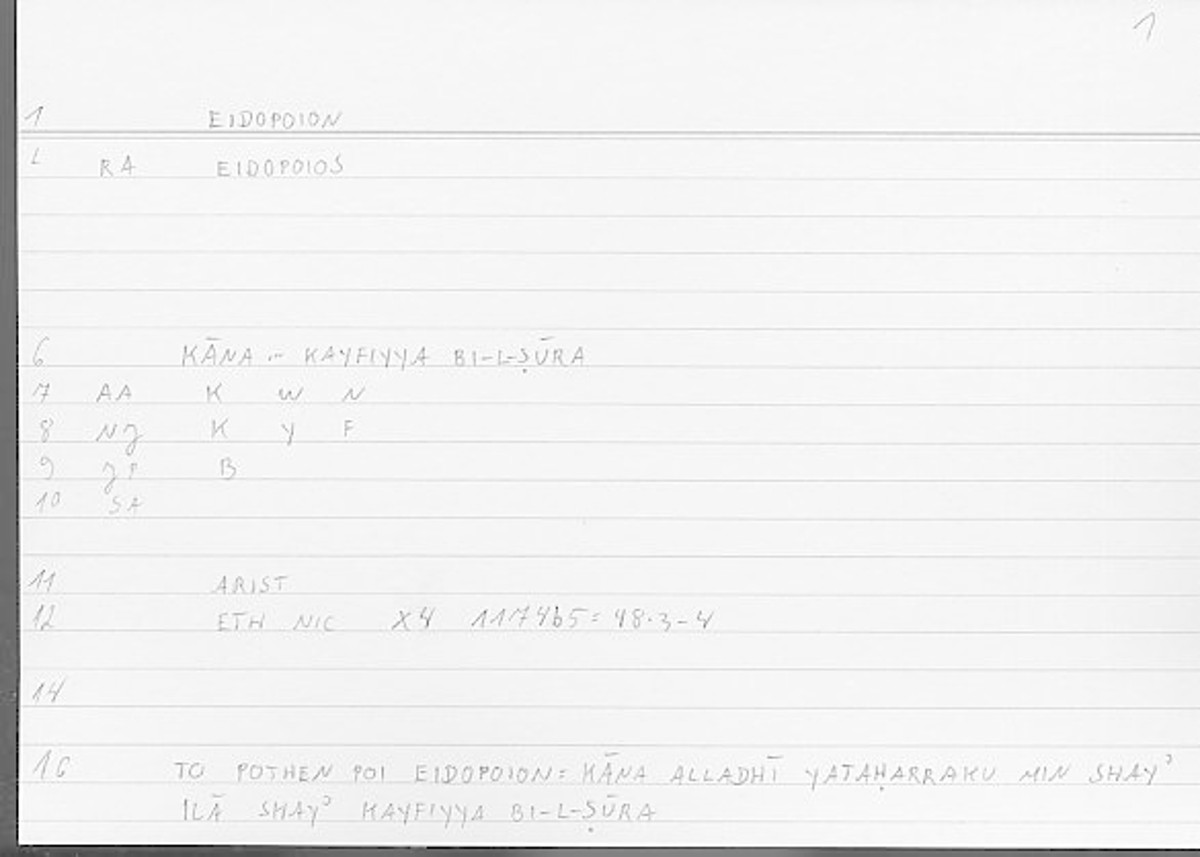 1
1 EIDOPOION
2 RA EIDOPOIOS
6 KĀNA ... KAYFIYYA BI-L-ṢŪRA
7 AA K W N
8 NJ K Y F
9 JP B
10 SA
11 ARIST
12 ETH NIC X4 1174b5 = 48.3-4
14
16 TO POTHEN POI EIDOPOION = KĀNA ALLADHĪ YATAḤARRAKU MIN SHAYʾ
ILĀ SHAYʾ KAYFIYYA BI-L-ṢŪRA